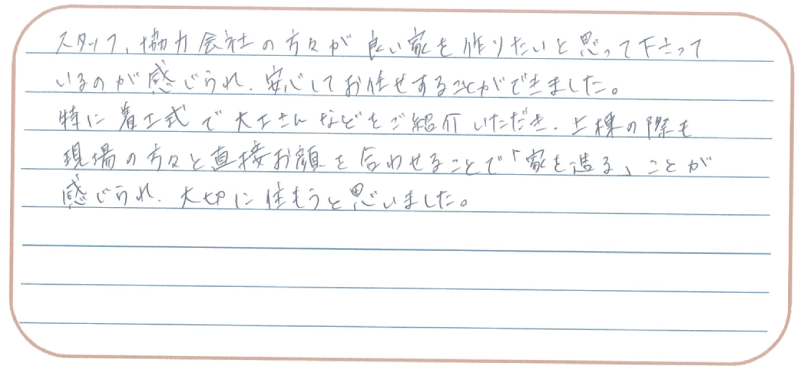 スタッフ、協力会社の方々が良い家を作りたいと思って下さって
いるのが感じられ、安心してお任せすることができました。
特に着工式で大工さんなどをご紹介いただき、上棟の際も
現場の方々と直接お顔を合わせることで「家を造る」ことが
感じられ、大切に住もうと思いました。